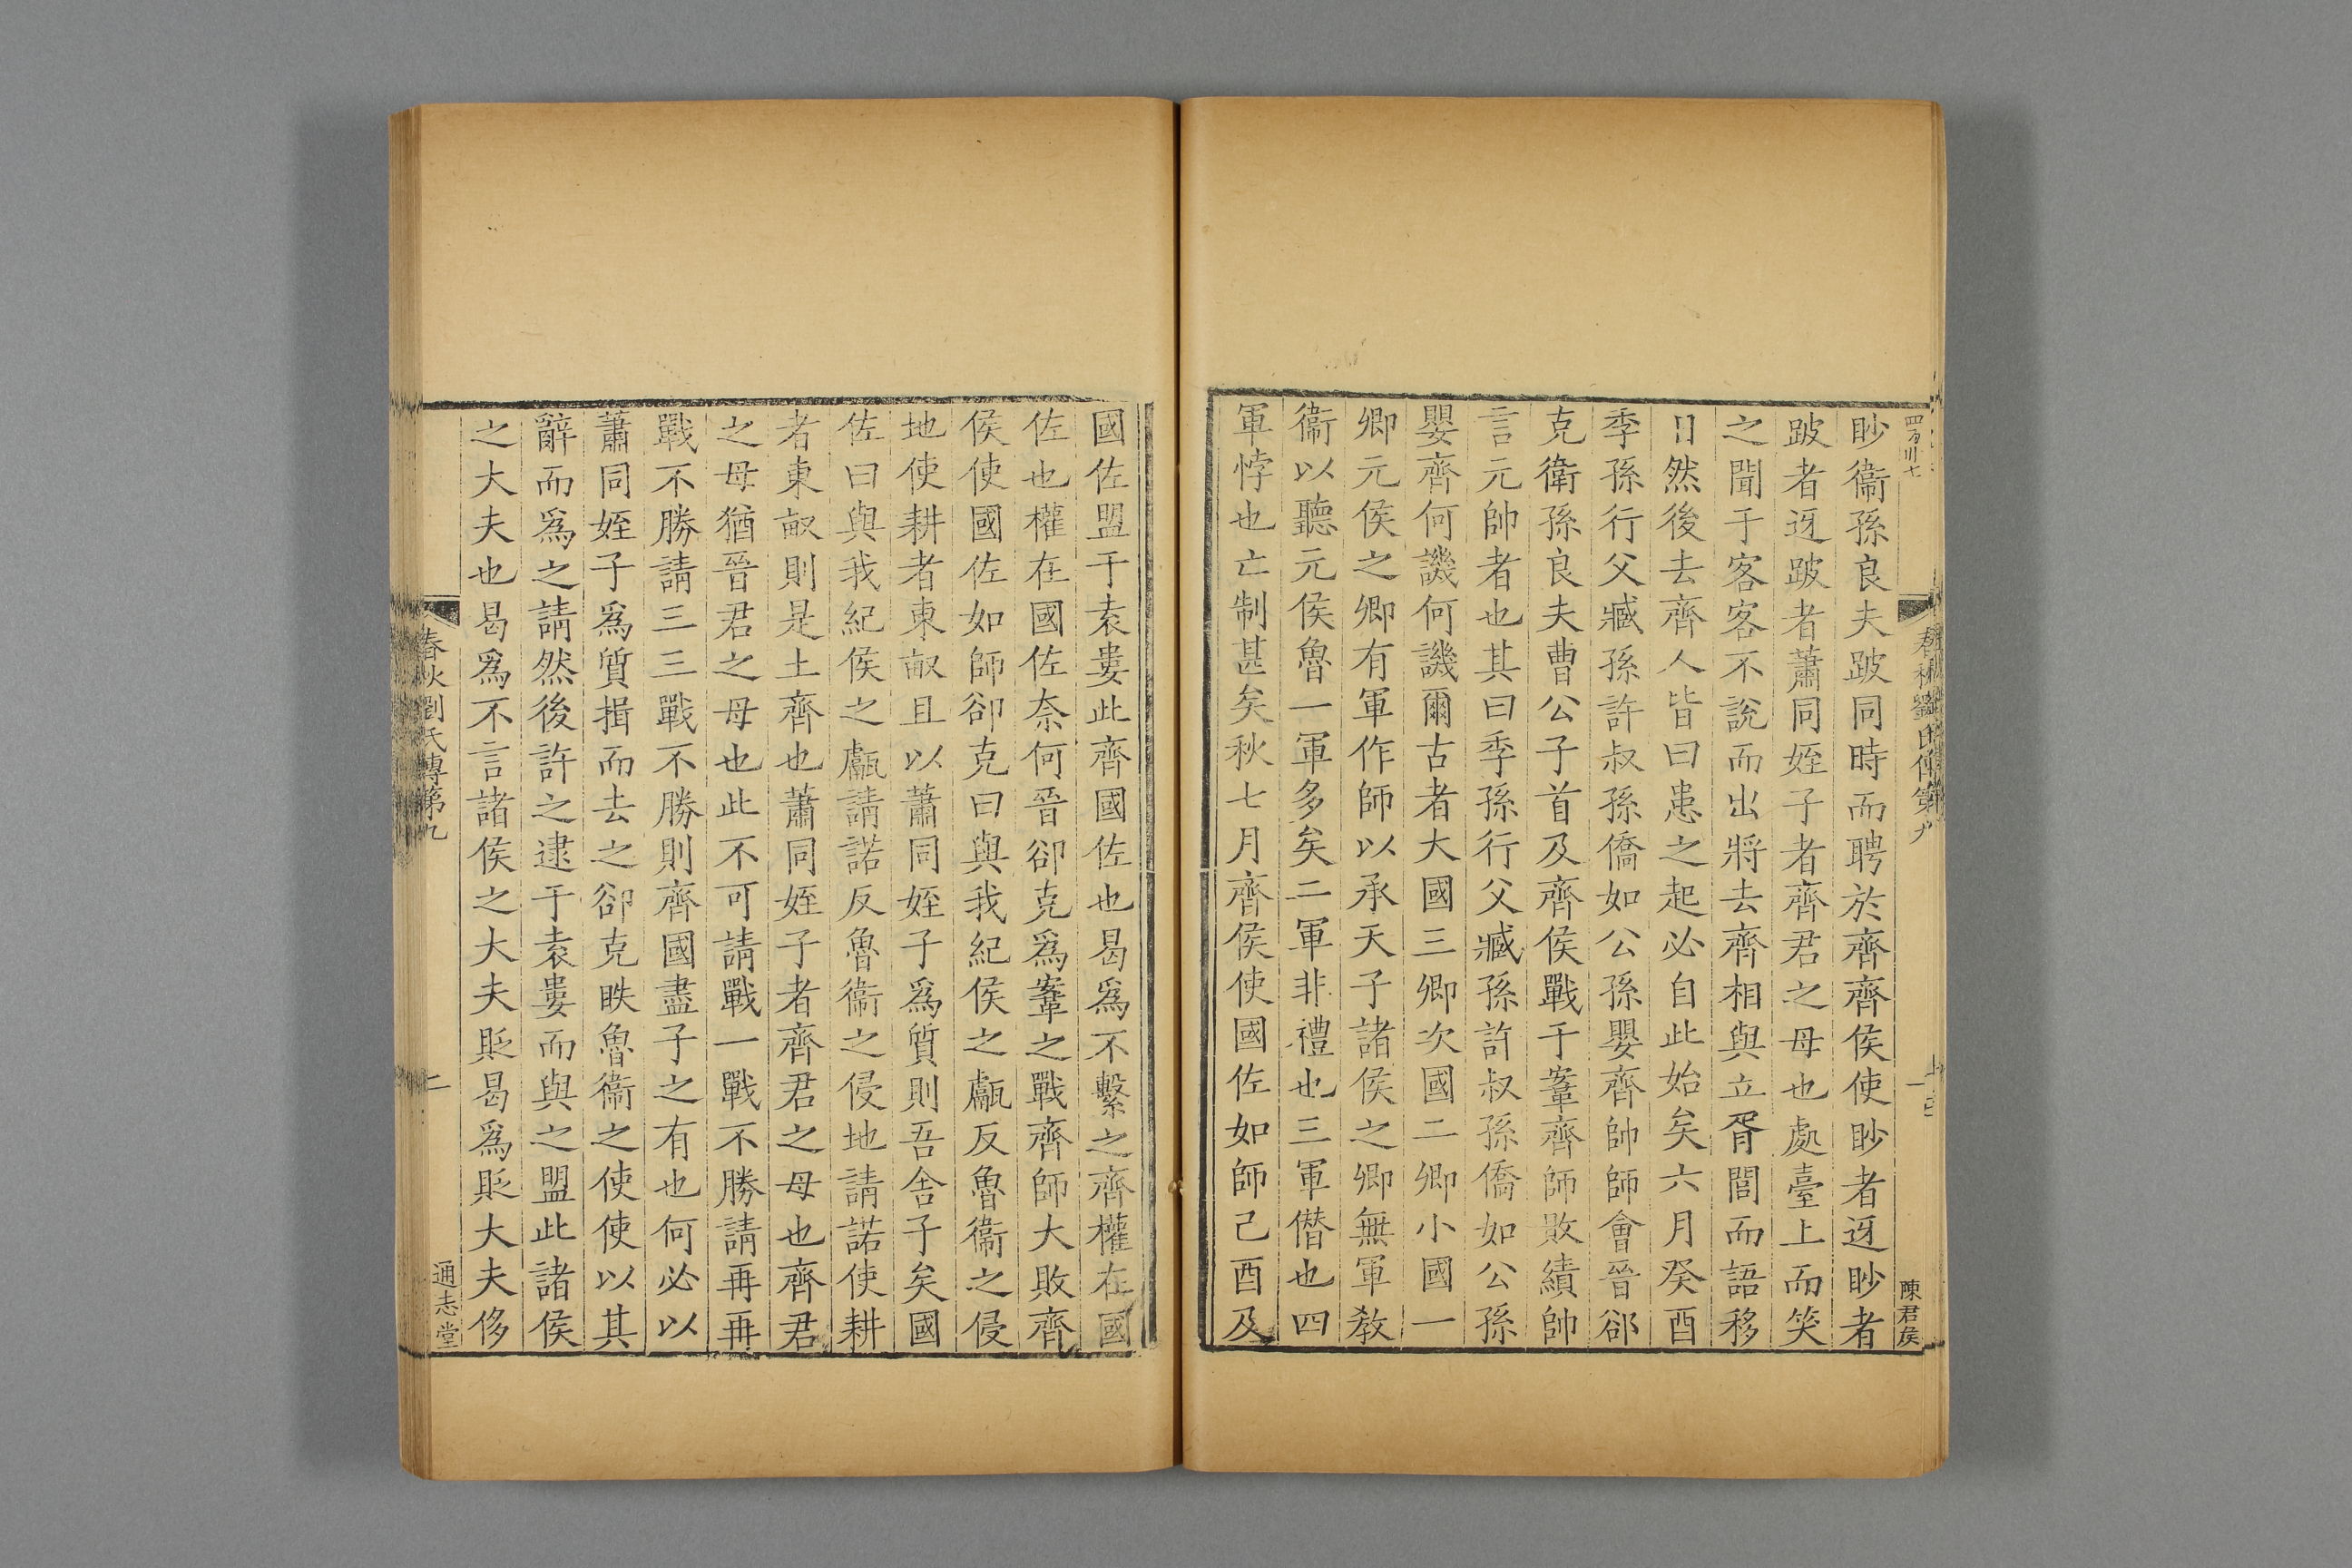 眇衞孫良夫跛同時而聘於齊齊侯使眇者迓眇者
跛者迓跛者蕭同姪子者齊君之母也處臺上而笑
之聞于客客不說而出將去齊相與立胥閭而語移
日然後去齊人皆曰患之起必自此始矣六月癸酉
季孫行父臧孫許叔孫僑如公孫嬰齊帥師會晉郤
克衛孫良夫曹公子首及齊侯戰于鞌齊師敗績帥
言元帥者也其曰季孫行父臧孫許叔孫僑如公孫
嬰齊何譏何譏爾古者大國三卿次國二卿小國一
卿元侯之卿有軍作師以承天子諸侯之卿無軍教
衞以聽元侯魯一軍多矣二軍非禮也三軍僭也四
軍悖也亡制甚矣秋七月齊侯使國佐如師己酉及
陳君矦
國佐盟于袁婁此齊國佐也曷爲不繫之齊權在國
佐也權在國佐奈何晉郤克爲鞌之戰齊師大敗齊
侯使國佐如師郤克曰與我紀侯之甗反魯衞之侵
地使耕者東畝且以蕭同姪子爲質則吾舍子矣國
佐曰與我紀侯之甗請諾反魯衞之侵地請諾使耕
者東畝則是土齊也蕭同姪子者齊君之母也齊君
之母猶晉君之母也此不可請戰一戰不勝請再再
戰不勝請三三戰不勝則齊國盡子之有也何必以
蕭同姪子爲質揖而去之郤克眣魯衞之使使以其
辭而爲之請然後許之逮于袁婁而與之盟此諸侯
之大夫也曷爲不言諸侯之大夫貶曷爲貶大夫侈
春秋劉氏傳第九
二
通志堂